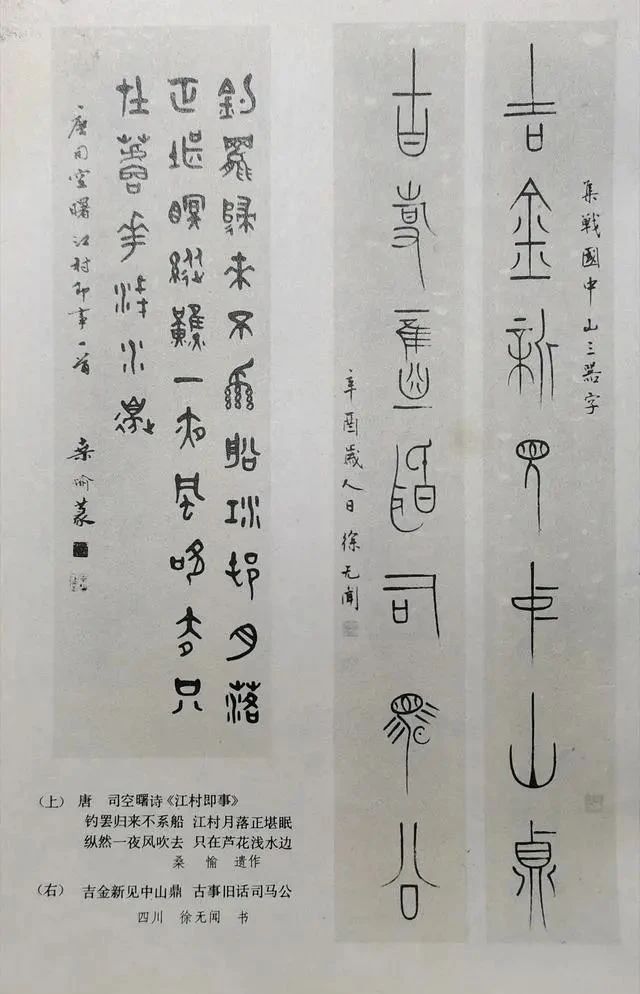 集戰國中山三器字
吉金新見中山鼎
古事舊話司馬公
辛酉歲人日徐无聞
釣罷歸來不系船江邨月落
正堪瞑縱然一夜風吹去只
在蘆花淺水邊
唐司空曙江村即事一首 桑愉篆
（上） 唐 司空曙诗《江村即事》
钓罢归来不系船 江村月落正堪眠
纵然一夜风吹去 只在芦花浅水边
桑 愉 遗作
（右） 吉金新见中山鼎 古事旧话司马公
四川 徐无闻 书